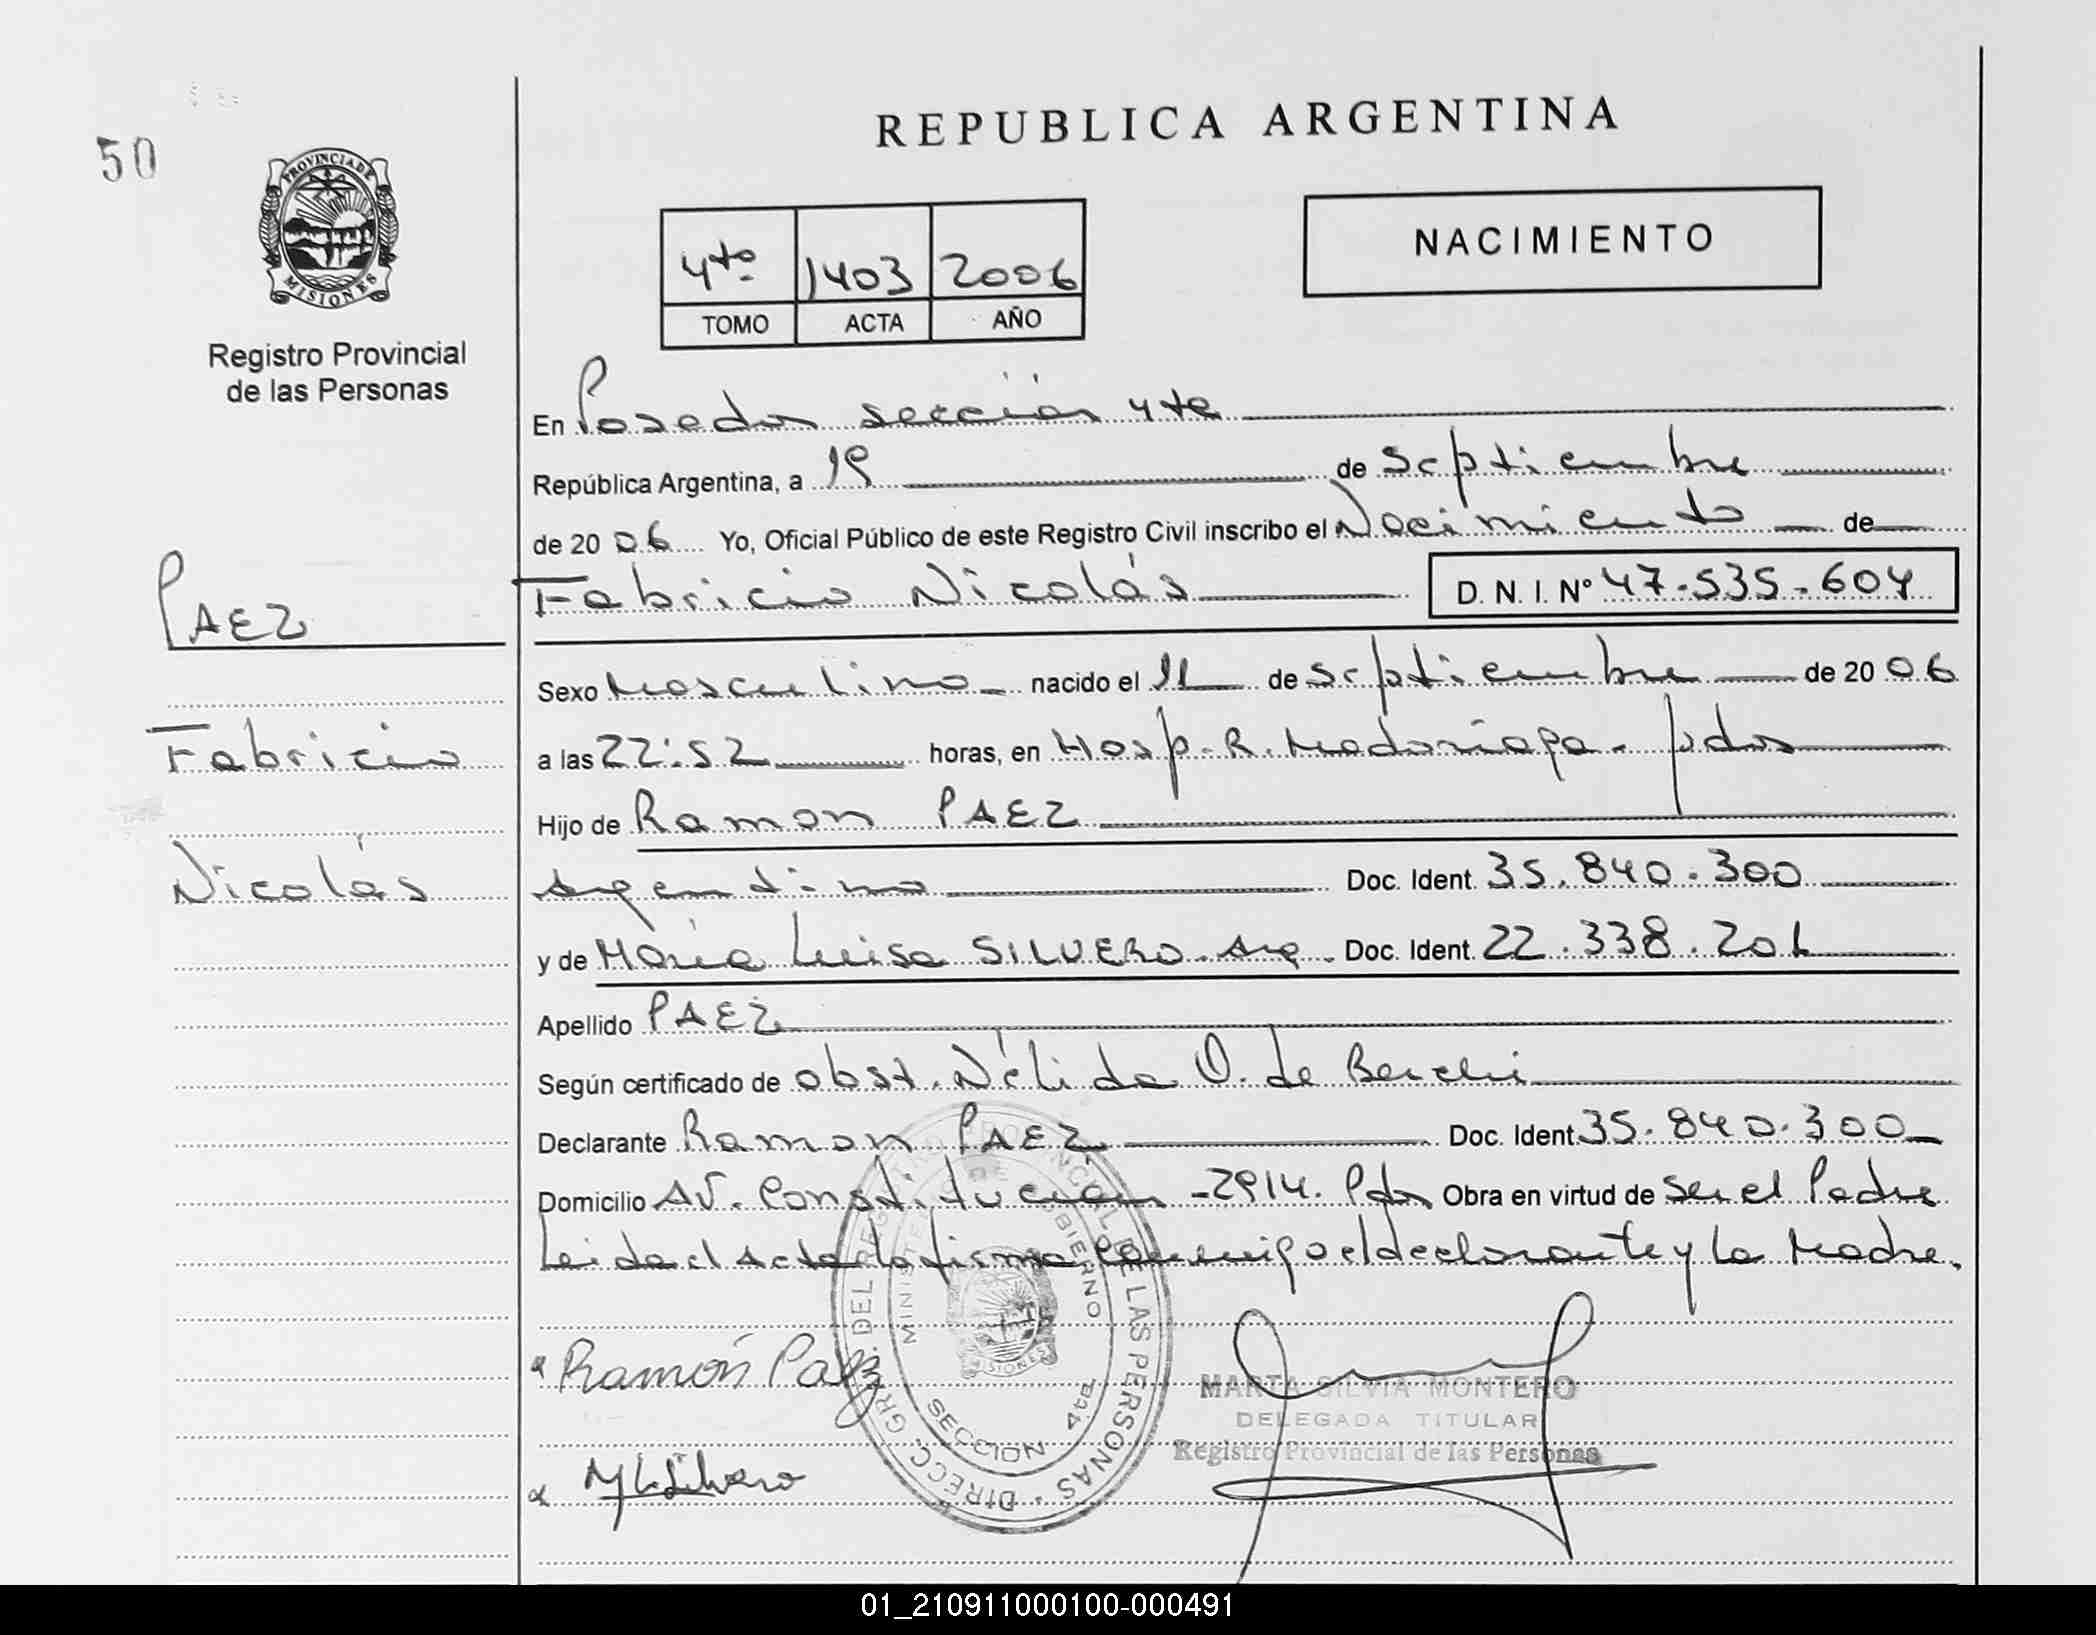 50
PROVINCIA DE
MISIONES
Registro Provincial
de las Personas
REPUBLICA ARGENTINA
4to 1403 2006
TOMO ACTA AÑO
NACIMIENTO
En Posadas sección 4ta
República Argentina, a 19 de Septiembre
de 2006 Yo, Oficial Público de este Registro Civil inscribo el Nacimiento de
PAEZ
Fabricio Nicolás D. N. I. Nº 47.535.604
Sexo Masculino nacido el 11 de Septiembre de 2006
Fabricio
a las 22:52 horas, en Hosp. R. Madariaga. pdas
Hijo de Ramon PAEZ
Nicolás
Argentino Doc. Ident. 35.840.300
y de María Luisa SILVERO. Arg. Doc. Ident. 22.338.201
Apellido PAEZ
Según certificado de obst. Nélida O. de
Declarante Ramon PAEZ Doc. Ident. 35.840.300
Domicilio AV. Constitución - 2914. Pdas Obra en virtud de ser el Padre
Leida el Acta la firma conmigo el declarante y la Madre.
DIRECC. GRAL. DEL REGISTRO PROVINCIAL DE LAS PERSONAS
MINISTERIO DE GOBIERNO
MISIONES
SECCION 4ta
Ramón Paez
MARTA SILVIA MONTERO
DELEGADA TITULAR
Registro Provincial de las Personas
M L Silvero
01_210911000100-000491